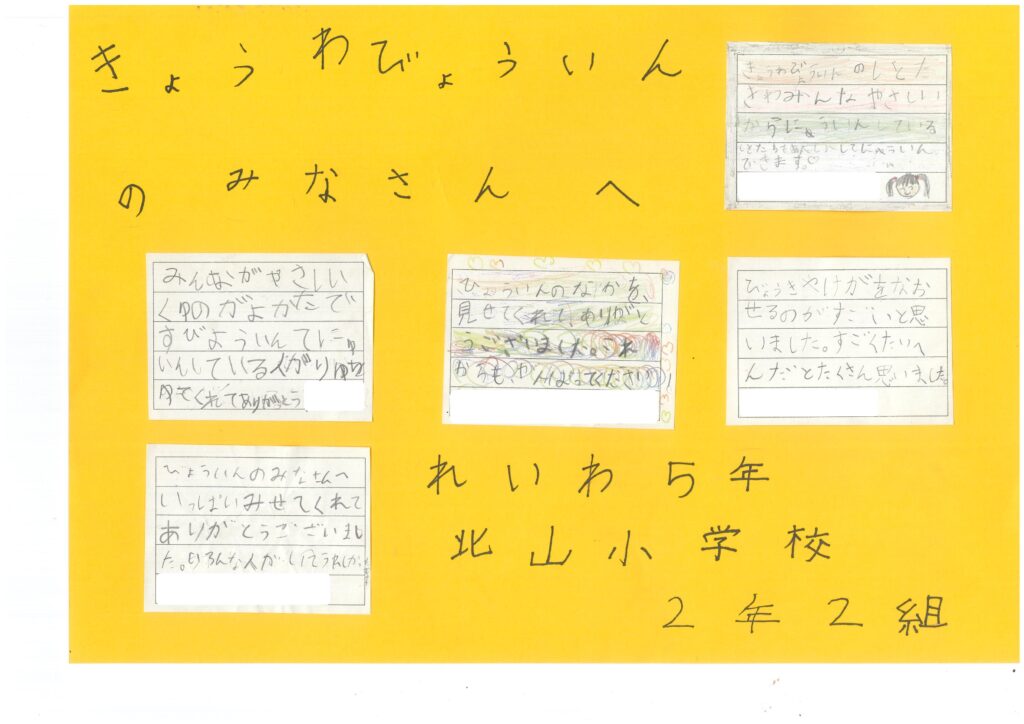 きょうわびょういん
のみなさんへ
きょうわびょういんのしとた
きわみんなやさしい
からにゅういんしている
しとたちもあんしんしてにゅういん
できます。♡
みんながやさしい
くゆのがよかたで
すびよういんてにゅ
いんしている人がり
ゆてくれてありがとう
びょういんのなかを、
見せてくれて、ありがと
うございました。これ
からも、がんばってください
びょうきやけがをなお
せるのがすごいと思
いました。すごくたいへ
んだとたくさん思いました。
びょういんのみなさんへ
いっぱいみせてくれて
ありがとうございまし
た。いろんな人が
れいわ5年
北山小学校
2年2組